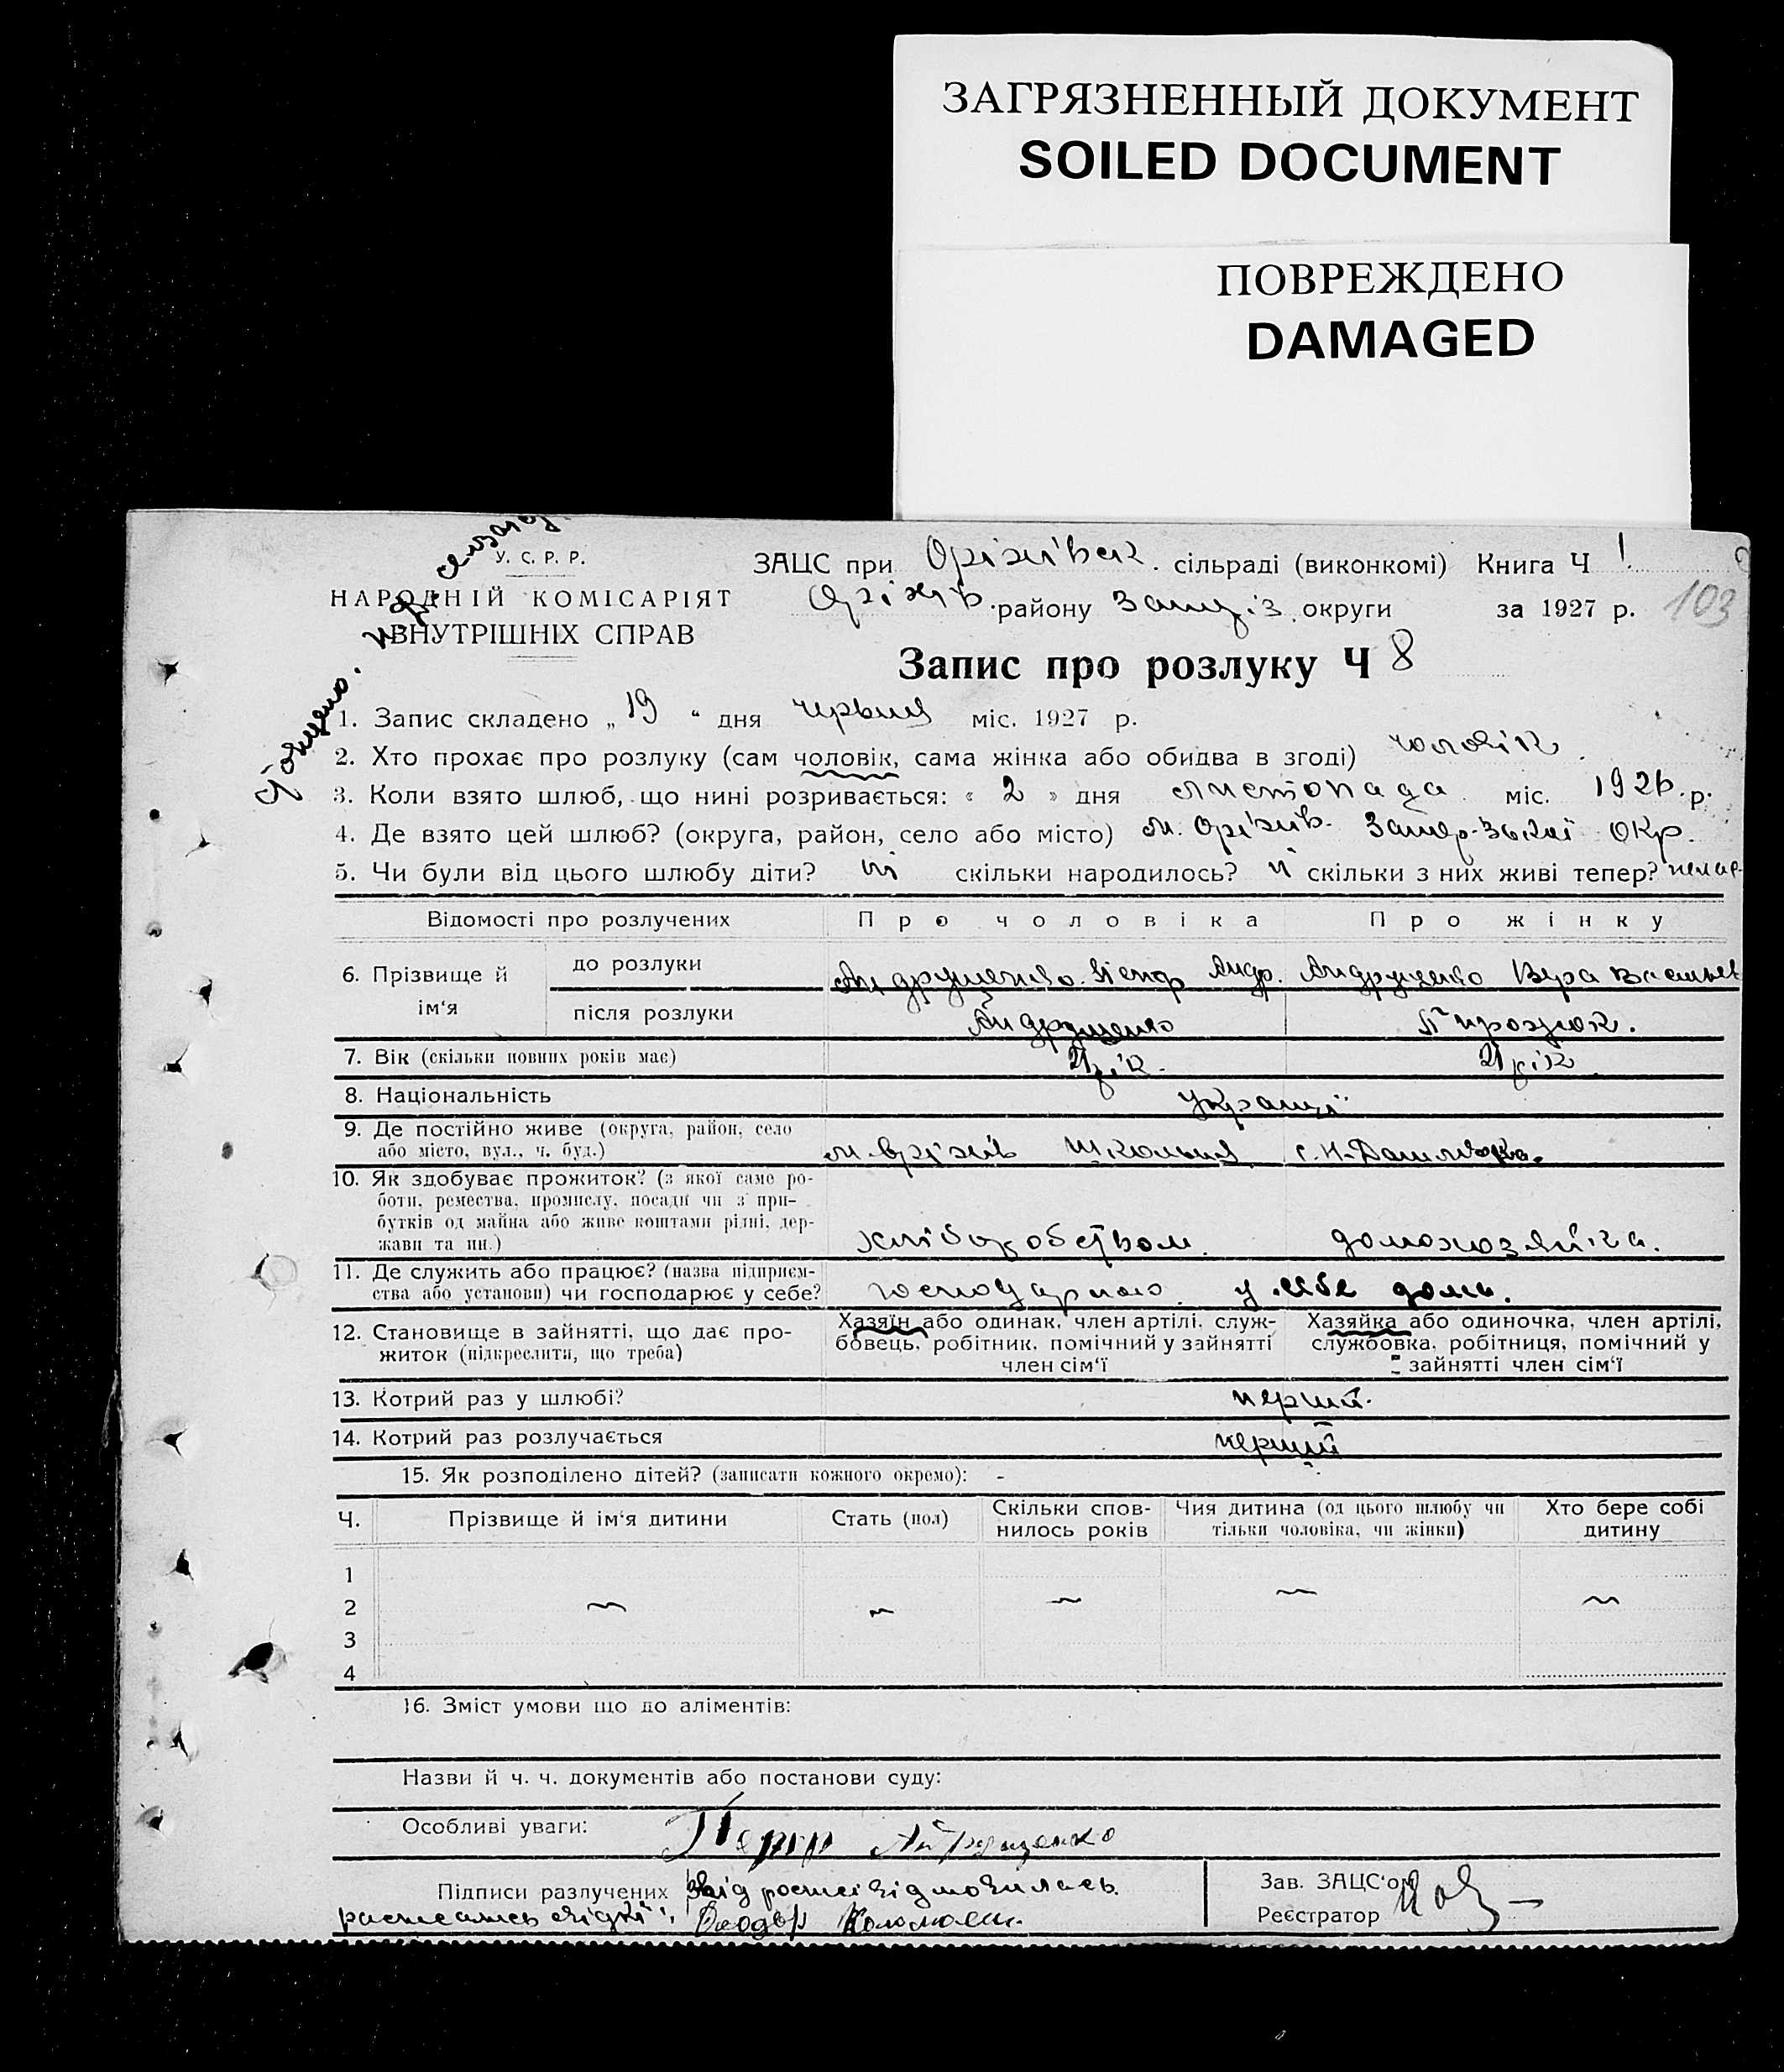 ЗАГРЯЗНЕННЫЙ ДОКУМЕНТ
SOILED DOCUMENT
ПОВРЕЖДЕНО
DAMAGED
У. С. Р. Р.
НАРОДНІЙ КОМІСАРІЯТ
ВНУТРІШНІХ СПРАВ
ЗАЦС при Оріхівськ. сільраді (виконкомі) Книга Ч 1
Оріхів. району Запоріз. округи за 1927 р. 103
Запис про розлуку Ч 8
1. Запис складено „ 19 “ дня червня міс. 1927 р.
2. Хто прохає про розлуку (сам чоловік, сама жінка або обидва в згоді) чоловік
3. Коли взято шлюб, що нині розривається: « 2 » дня листопада міс. 1926 р.
4. Де взято цей шлюб? (округа, район, село або місто) м. Оріхів. Запор-зької окр.
5. Чи були від цього шлюбу діти? ні скільки народилось? скільки з них живі тепер?
Відомості про розлучених Про чоловіка Про жінку
6. Прізвище й ім‘я
до розлуки Андрущенко Петр Андр. Андрущенко Вера Васильев
після розлуки Андрущенко Пирожок.
7. Вік (скільки повних років має) 21 рік. 21 рік
8. Національність Українці
9. Де постійно живе (округа, район, село
або місто, вул., ч. буд.) м. Оріхів Шкільна с. Н-Данилівка.
10. Як здобуває прожиток? (з якої саме ро-
боти, ремества, промислу, посади чи з при-
бутків од майна або живе коштами рідні, дер-
жави та ин.) хліборобством. домохозяйка.
11. Де служить або працює? (назва підприєм-
ства або установи) чи господарює у себе? господаркою у себе дома.
12. Становище в зайнятті, що дає про-
житок (підкреслити, що треба)
Хазяїн або одинак, член артілі, служ-
бовець, робітник, помічний у зайнятті
член сім‘ї
Хазяйка або одиночка, член артілі,
службовка, робітниця, помічний у
зайнятті член сім‘ї
13. Котрий раз у шлюбі? перший.
14. Котрий раз розлучається перший
15. Як розподілено дітей? (записати кожного окремо): -
Ч. Прізвище й ім‘я дитини Стать (пол) Скільки спов-
нилось років Чия дитина (од цього шлюбу чи
тільки чоловіка, чи жінки) Хто бере собі
дитину
1
2
3
4
16. Зміст умови що до аліментів:
Назви й ч. ч. документів або постанови суду:
Особливі уваги: Петр Андрущенко
Підписи разлучених від росписі відмовилась
Зав. ЗАЦС‘ом
Реєстратор